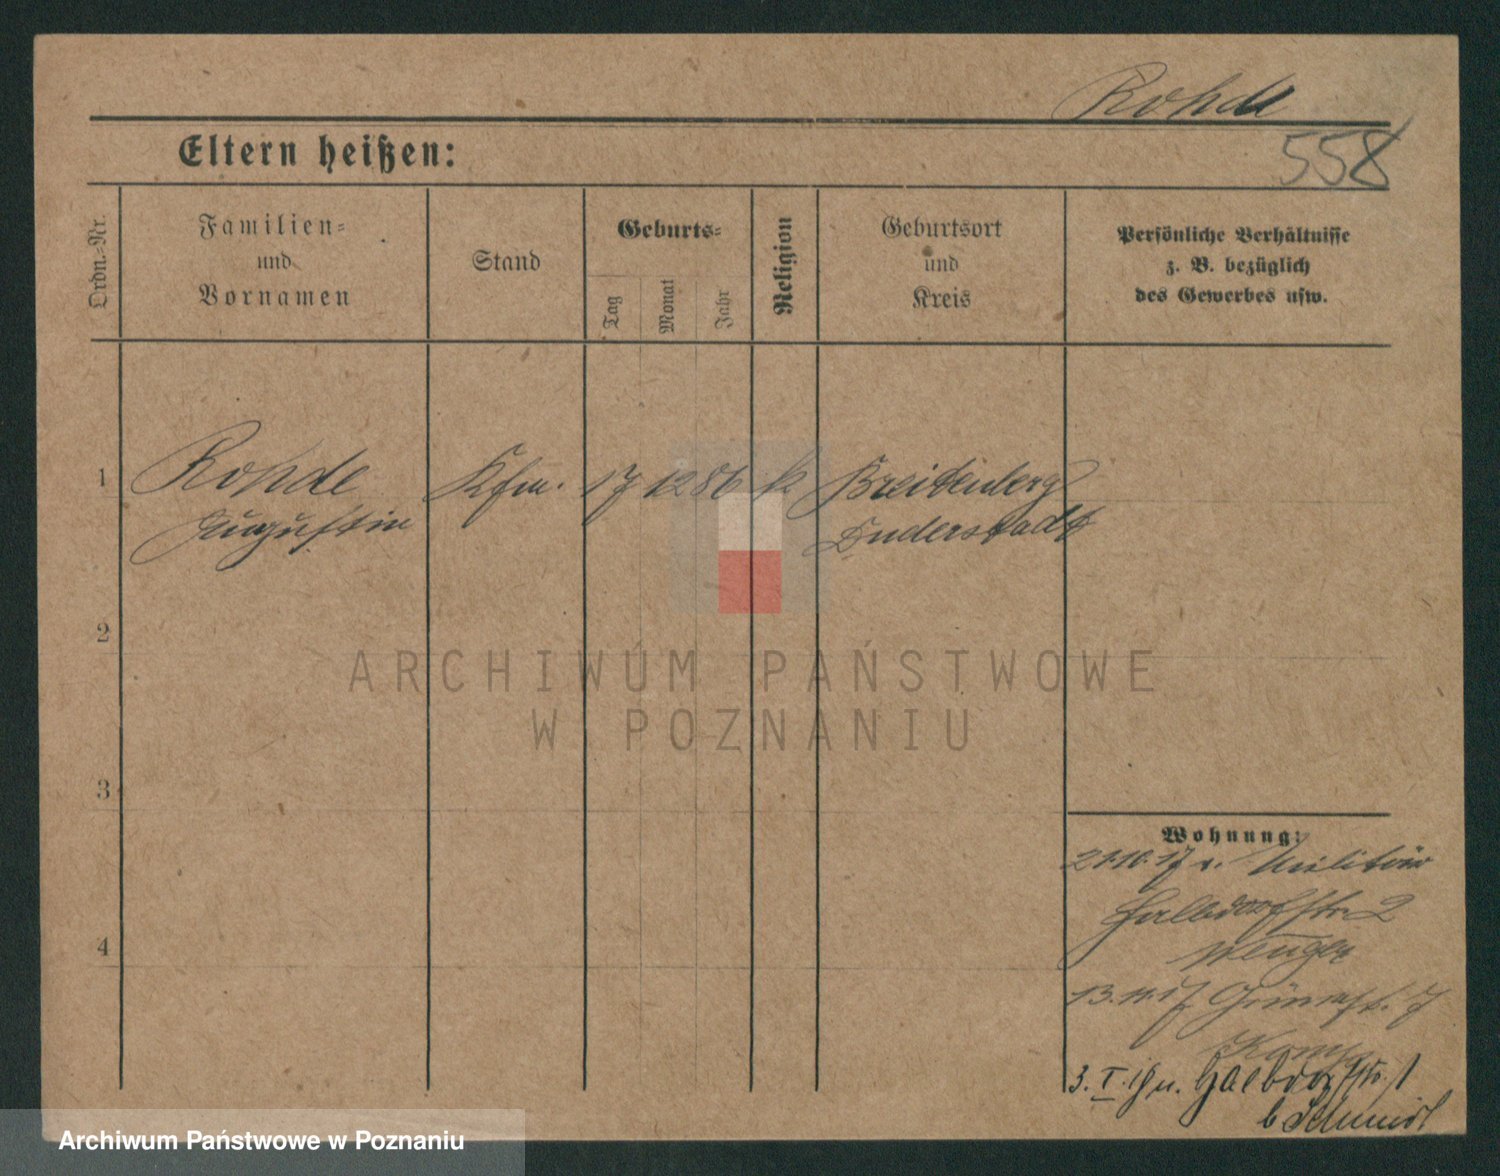 Rohde
558
Eltern heißen:
Ordn.-Nr.
Familien- und Vornamen
Stand
Geburts-
Tag
Monat
Jahr
Religion
Geburtsort und Kreis
Persönliche Verhältnisse
z. B. bezüglich
des Gewerbes usw.
1 Rohde Kfm. 17 12 86 k Breitenberg
Augustin Duderstadt
2
3
4
ARCHIWUM PAŃSTWOWE
W POZNANIU
Wohnung:
21.10.17 v. Militär
Halbdorfstr 2
13.11.17 7
3. I. Halbdorfstr. 1
b Schmidt
Archiwum Państwowe w Poznaniu